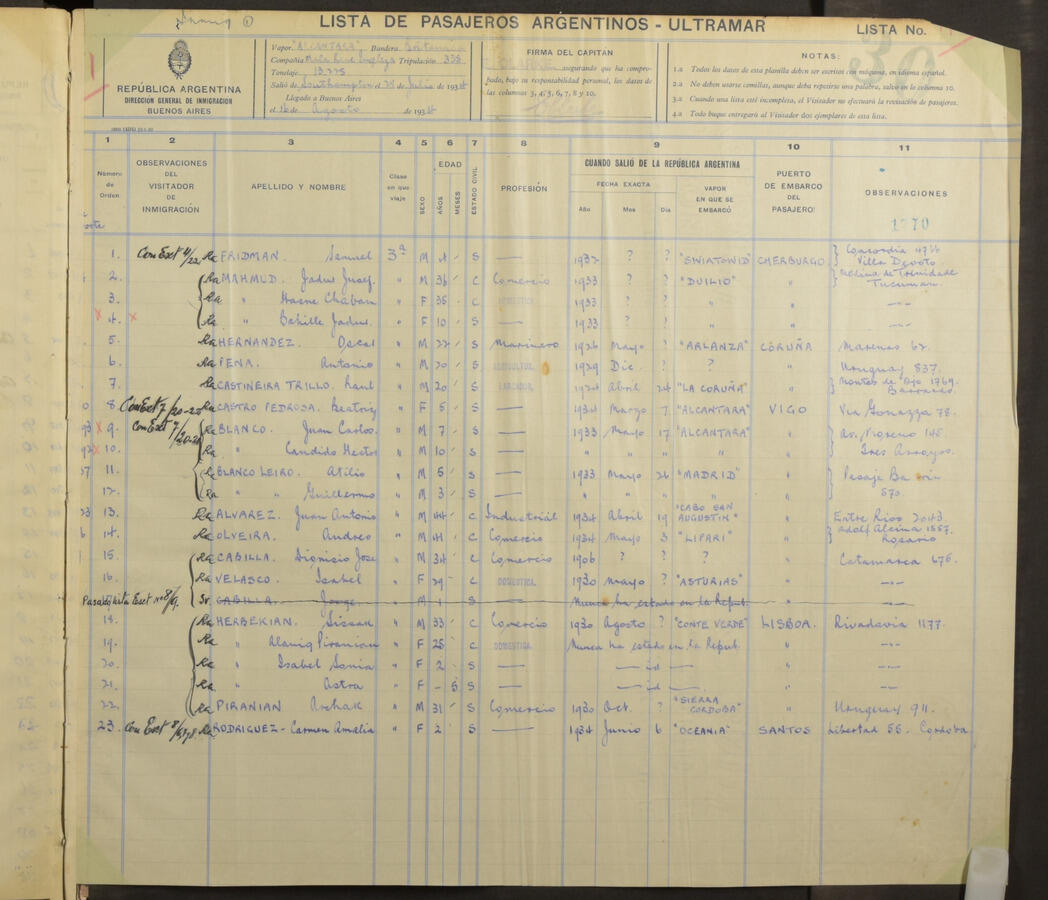 LISTA DE PASAJEROS ARGENTINOS - ULTRAMAR
LISTA No.
30
REPÚBLICA ARGENTINA
DIRECCIÓN GENERAL DE INMIGRACIÓN
BUENOS AIRES
Vapor "ALCANTARA" Bandera Britanica
Compañía Mala Real Inglesa Tripulación 338
Tonelaje
Salió de Southampton el 28 de Julio de 1934
Llegado a Buenos Aires
el 16 de Agosto de 1934
FIRMA DEL CAPITAN
asegurando que ha compro-
bado, bajo su responsabilidad personal, los datos de
las columnas 3, 4, 5, 6, 7, 8 y 10.
NOTAS:
1.a Todos los datos de esta planilla deben ser escritos con máquina, en idioma español.
2.a No deben usarse comillas, aunque deba repetirse una palabra, salvo en la columna 10.
3.a Cuando una lista esté incompleta, el Visitador no efectuará la revisación de pasajeros.
4.a Todo buque entregará al Visitador dos ejemplares de esta lista.
1 2 3 4 5 6 7 8 9 10 11
Número de Orden
OBSERVACIONES DEL VISITADOR DE INMIGRACIÓN
APELLIDO Y NOMBRE
Clase en que viaje
SEXO
EDAD
AÑOS
MESES
ESTADO CIVIL
PROFESIÓN
CUANDO SALIÓ DE LA REPÚBLICA ARGENTINA
FECHA EXACTA
Año Mes Día
VAPOR EN QUE SE EMBARCÓ
PUERTO DE EMBARCO DEL PASAJERO
OBSERVACIONES
1270
1. Con Ext 4/22 Ra FRIDMAN. Samuel 3ª M 4 S — 1932 ? ? "SWIATOWID" CHERBURGO Concordia 4736 Villa Devoto
2. Ra MAHMUD. Jadus Jusef " M 36 C Comercio 1933 ? ? "DUILIO" " Medina de Trinidade Tucuman
3. Ra " Hasne Chaban " F 35 C DOMESTICA 1933 ? ? " " —"—
x 4. x Ra " Bahille Jadus. " F 10 S — 1933 ? ? " " —"—
5. Ra HERNANDEZ. Oscar " M 22 S Marinero 1926 Mayo ? "ARLANZA" CORUÑA Marenas 62.
6. Ra PENA. Antonio " M 20 S AGRICULTOR. 1929 Dic. ? ? " Uruguay 837.
7. Ra CASTINEIRA TRILLO. Raul " M 20 S LABRADOR 1924 Abril 24 "LA CORUÑA" " Montes de Oca 1769. Barracas
8 Con Ext 7/20-22 Ra CASTRO PEDROSA. Beatriz " F 5 S — 1934 Marzo 7 "ALCANTARA" VIGO Via Gonazza 78.
x 9. Con Ext 7/20-21 Ra BLANCO. Juan Carlos " M 7 S — 1933 Mayo 17 "ALCANTARA" " Av. Moreno 145
x 10. Ra " Candido Hector " M 10 S — " " " " " Tres Arroyos.
11. Ra BLANCO LEIRO. Atilio " M 5 S — 1933 Mayo 26 "MADRID" " Pasaje
12. Ra " " Guillermo " M 3 S — " " " " " 570.
13. Ra ALVAREZ. Juan Antonio " M 44 C Industrial 1934 Abril 19 "CABO SAN AUGUSTIN" " Entre Rios 2043
14. Ra OLVEIRA. Andres " M 41 C Comercio 1934 Mayo 3 "LIPARI" " Adolf Alcina 1557. Rosario
15. Ra CABILLA. Dionicio Jose " M 34 C Comercio 1906 ? ? ? " Catamarca 676.
16. Ra VELASCO. Isabel " F 29 C DOMESTICA. 1930 Mayo ? "ASTURIAS" " —"—
Pasado lista Ext nº 8/9. 17 Sr. CABILLA. Jorge " M 1 S — Nunca ha estado en la Repub. " —"—
18. Ra HERBEKIAN. Sissak " M 33 C Comercio 1930 Agosto ? "CONTE VERDE" LISBOA. Rivadavia 1177.
19. Ra " Alaniq Piranian " F 25 C DOMESTICA. Nunca ha estado en la Repub. " —"—
20. Ra " Isabel Sonia " F 2 S — — id — " —"—
21. Ra " Astra " F - 5 S — — id — " —"—
22. Ra PIRANIAN Arshak " M 31 S Comercio 1930 Oct. ? "SIERRA CORDOBA" " Uruguay 911.
23. Con Ext 8/ Ra RODRIGUEZ - Carmen Amalia " F 2 S — 1934 Junio 6 "OCEANIA" SANTOS Libertad 55. Cordoba